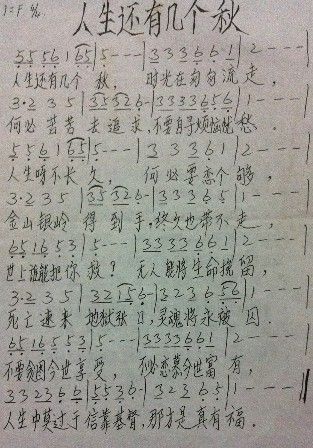 人生还有几个秋
1=F 4/4
5 5 5 6 1 6 5 | 5 - - - | 3 3 3 6 6 1 | 2 - - - |
人生还有几个 秋, 时光在匆匆流走,
3·2 3 5 | 3 5 3 2 6 - | 3 3 3 3 6 5 6 | 1 - - - |
何必 苦苦 去追求,不要自寻烦恼忧愁.
5 5 6 1 6 5 | 5 - - - | 3 3 3 6 1 | 2 - - - |
人生呀不长 久, 何必要恋个够,
3·2 3 5 | 3 5 3 2 6 - | 3 3 3 6 5 | 1 - - - |
金山银岭 得到手,终久也带不走,
6 5 1 6 5 3 | 5 - - - | 3 3 3 3 6 6 1 | 2 - - - |
世上谁能把你救? 无人能将生命挽留,
3·2 3 5 | 3 2 1 5 6 - | 3 2 3 6 5 6 | 1 - - - |
死亡速来 地狱张口,灵魂将永被 囚.
6 5 1 6 5 5 3 | 5 - - - | 3 3 3 3 6 6 1 | 2 - - - |
不要贪图今世享受, 不必恋慕今世富 有,
3 3 2 3 6 6 | 5 5 3 6 - | 3 2 3 6 5 | 1 - - - ‖
人生中莫过于信靠基督,那才是真有福.